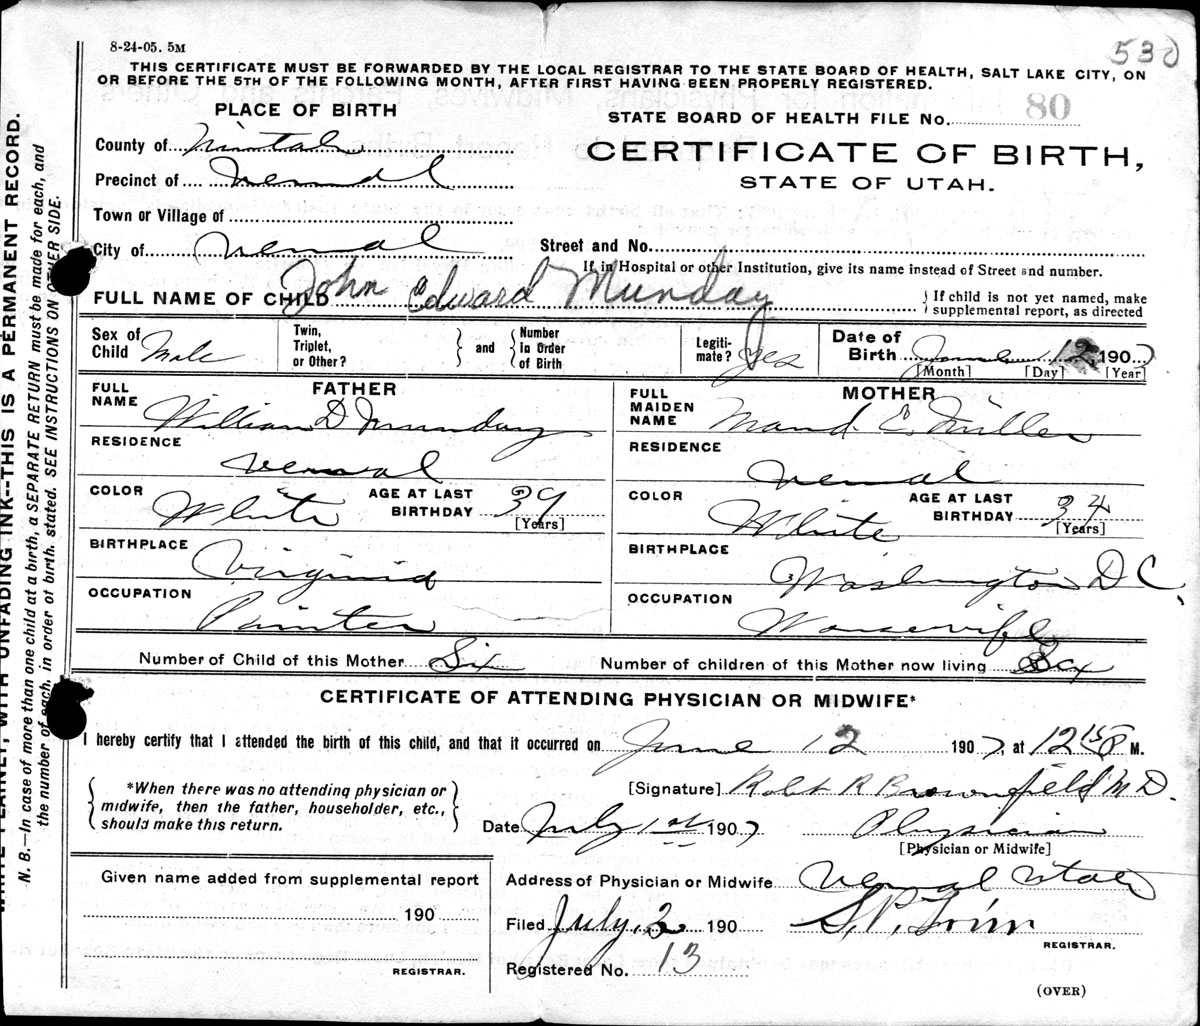 8-24-05. 5M
530
THIS CERTIFICATE MUST BE FORWARDED BY THE LOCAL REGISTRAR TO THE STATE BOARD OF HEALTH, SALT LAKE CITY, ON
OR BEFORE THE 5TH OF THE FOLLOWING MONTH, AFTER FIRST HAVING BEEN PROPERLY REGISTERED.
PLACE OF BIRTH
STATE BOARD OF HEALTH FILE No. 80
County of Uintah
CERTIFICATE OF BIRTH,
STATE OF UTAH.
Precinct of Vernal
Town or Village of
City of Vernal
Street and No.
If in Hospital or other Institution, give its name instead of Street and number.
FULL NAME OF CHILD John Edward Munday
If child is not yet named, make
supplemental report, as directed
Sex of Child Male
Twin, Triplet, or Other?
and
Number in Order of Birth
Legiti-mate? yes
Date of Birth June 12 1907
[Month] [Day] [Year]
FATHER
FULL NAME William D Munday
RESIDENCE Vernal
COLOR White
AGE AT LAST BIRTHDAY 39
[Years]
BIRTHPLACE Virginia
OCCUPATION Painter
MOTHER
FULL MAIDEN NAME Maud E. Miller
RESIDENCE Vernal
COLOR White
AGE AT LAST BIRTHDAY 34
[Years]
BIRTHPLACE Washington D C,
OCCUPATION Housewife
Number of Child of this Mother Six
Number of children of this Mother now living Six
CERTIFICATE OF ATTENDING PHYSICIAN OR MIDWIFE*
I hereby certify that I attended the birth of this child, and that it occurred on June 12 1907, at 12 15 P M.
*When there was no attending physician or
midwife, then the father, householder, etc.,
should make this return.
[Signature] Robt R Brownfield M D.
Date July 1st 1907
Physician
[Physician or Midwife]
Given name added from supplemental report
190
REGISTRAR.
Address of Physician or Midwife Vernal Utah
Filed July 2 190
REGISTRAR.
Registered No. 13
(OVER)
WITH UNFADING INK--THIS IS A PERMANENT RECORD.
N. B.—In case of more than one child at a birth, a SEPARATE RETURN must be made for each, and
the number of each, in order of birth, stated. SEE INSTRUCTIONS ON OTHER SIDE.